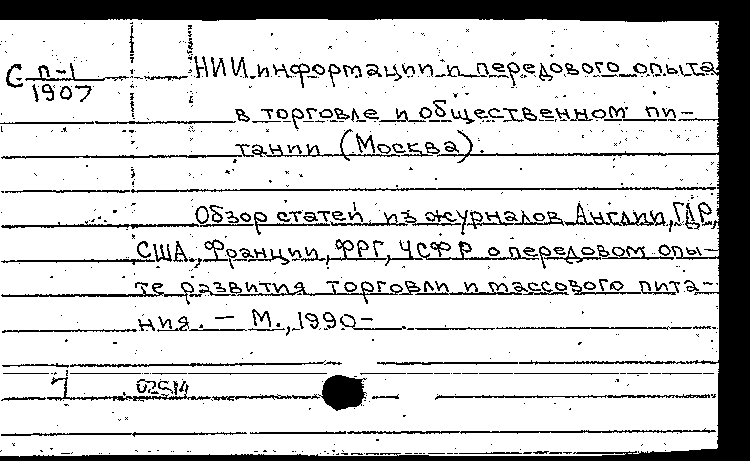 С п-1 НИИ информации и передового опыта
1907
в торговле и общественном пи-
тании (Москва).
Обзор статей из журналов Англии, ГДР,
США, Франции, ФРГ, ЧСФР о передовом опы-
те развития торговли и массового пита-
ния. — М., 1990-